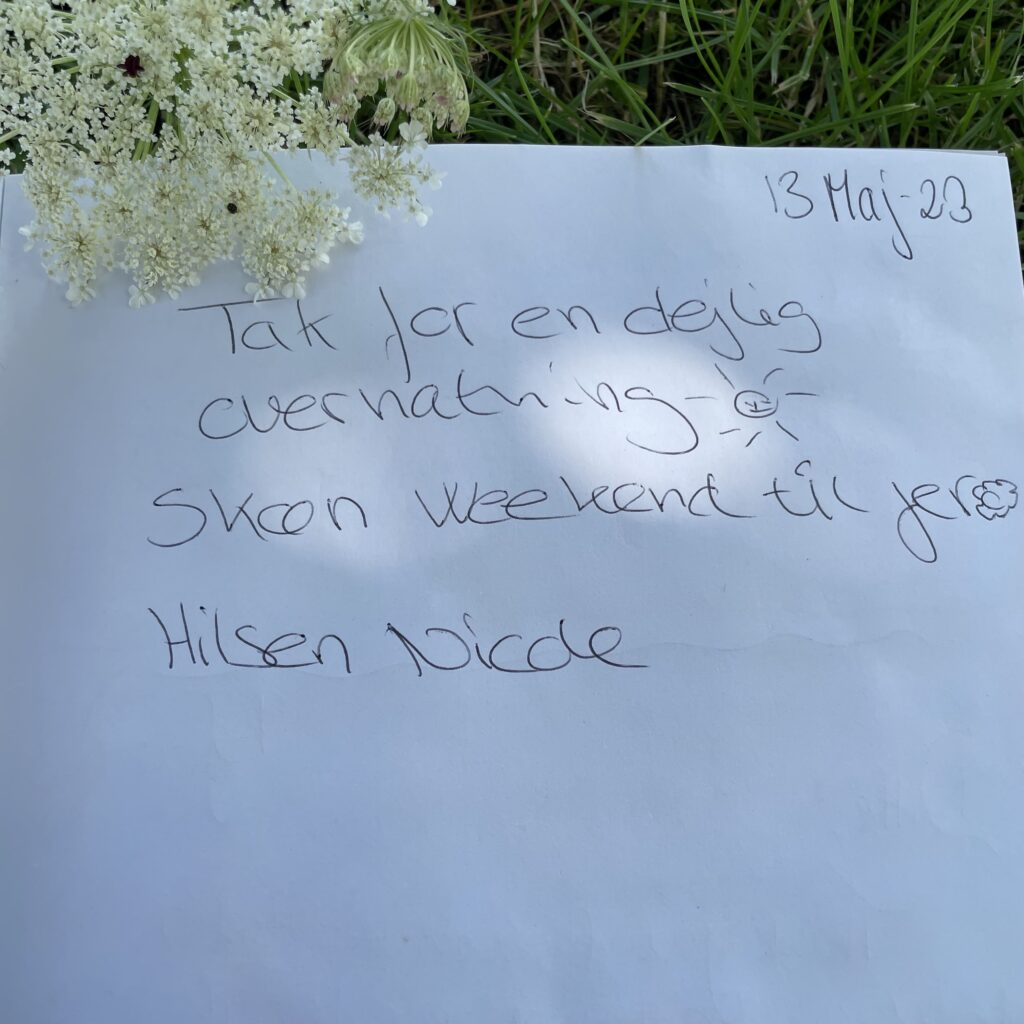 13 Maj-23
Tak for en dejlig
overnatning
Skøn weekend til jer
Hilsen Nicole